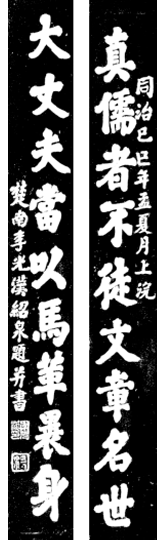 同治己巳年孟夏月上浣
真儒者不徒文章名世
大丈夫當以馬革裹身
楚南李光漢紹泉題并書